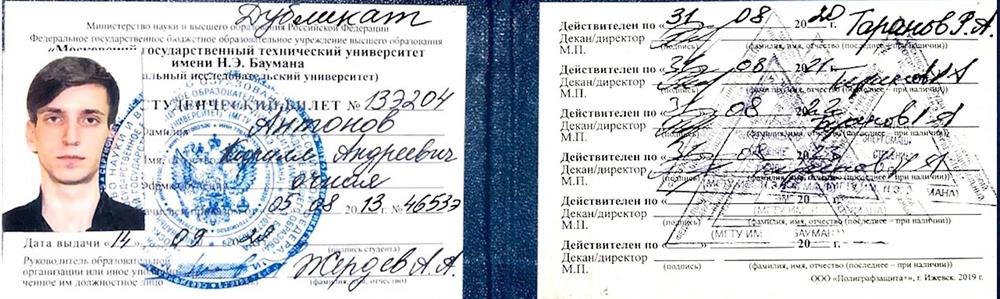 Дубликат
Министерство науки и высшего образования Российской Федерации
Федеральное государственное бюджетное образовательное учреждение высшего образования
«Московский государственный технический университет
имени Н.Э. Баумана
альный исследовательский университет)
СТУДЕНЧЕСКИЙ БИЛЕТ № 13Э204
Фамилия Антонов
Имя, Кирилл Андреевич
Форма очная
Зачислен приказом от 05 08 2013 г. № 4653э
Дата выдачи «14 09
(подпись студента)
Руководитель образовательной
организации или иное уполномо-
ченное им должностное лицо Жердев А.А.
(фамилия, имя, отчество)
Действителен по «31 08 2020 Таранов Р.А.
Декан/директор
М.П. (подпись) (фамилия, имя, отчество (последнее – при наличии))
Действителен по «31 08 2021
Декан/директор
М.П. (подпись) (фамилия, имя, отчество (последнее – при наличии))
Действителен по «31 08 2022
Декан/директор
М.П. (подпись) (фамилия, имя, отчество (последнее – при наличии))
Действителен по «31 08 20
Декан/директор
М.П. (подпись) (фамилия, имя, отчество (последнее – при наличии))
Действителен по «
Декан/директор
М.П. (подпись) (фамилия, имя, отчество (последнее – при наличии))
Действителен по « 20
Декан/директор
М.П. (подпись) (фамилия, имя, отчество (последнее – при наличии))
ООО «Полиграфзащита+», г. Ижевск, 2019 г.